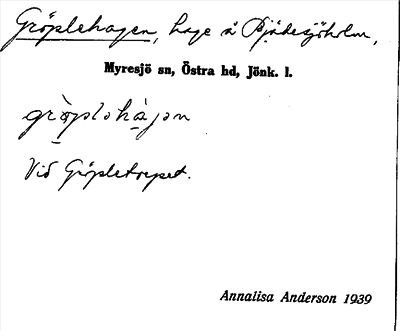 Gröplehagen, hage å Bjädesjöholm,
Myresjö sn, Östra hd, Jönk. l.
grὸplɘhàgɘn
Vid Gröpletorpet.
Annalisa Anderson 1939